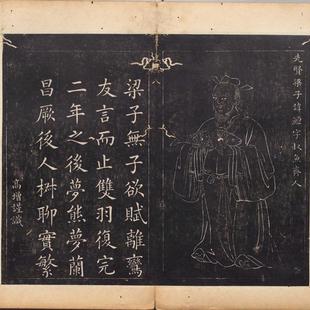 先賢梁子諱鱣字叔魚齊人
梁子無子欲賦離鸞
友言而止雙羽復完
二年之後夢熊夢蘭
昌厥後人椒聊實繁
高增謹識